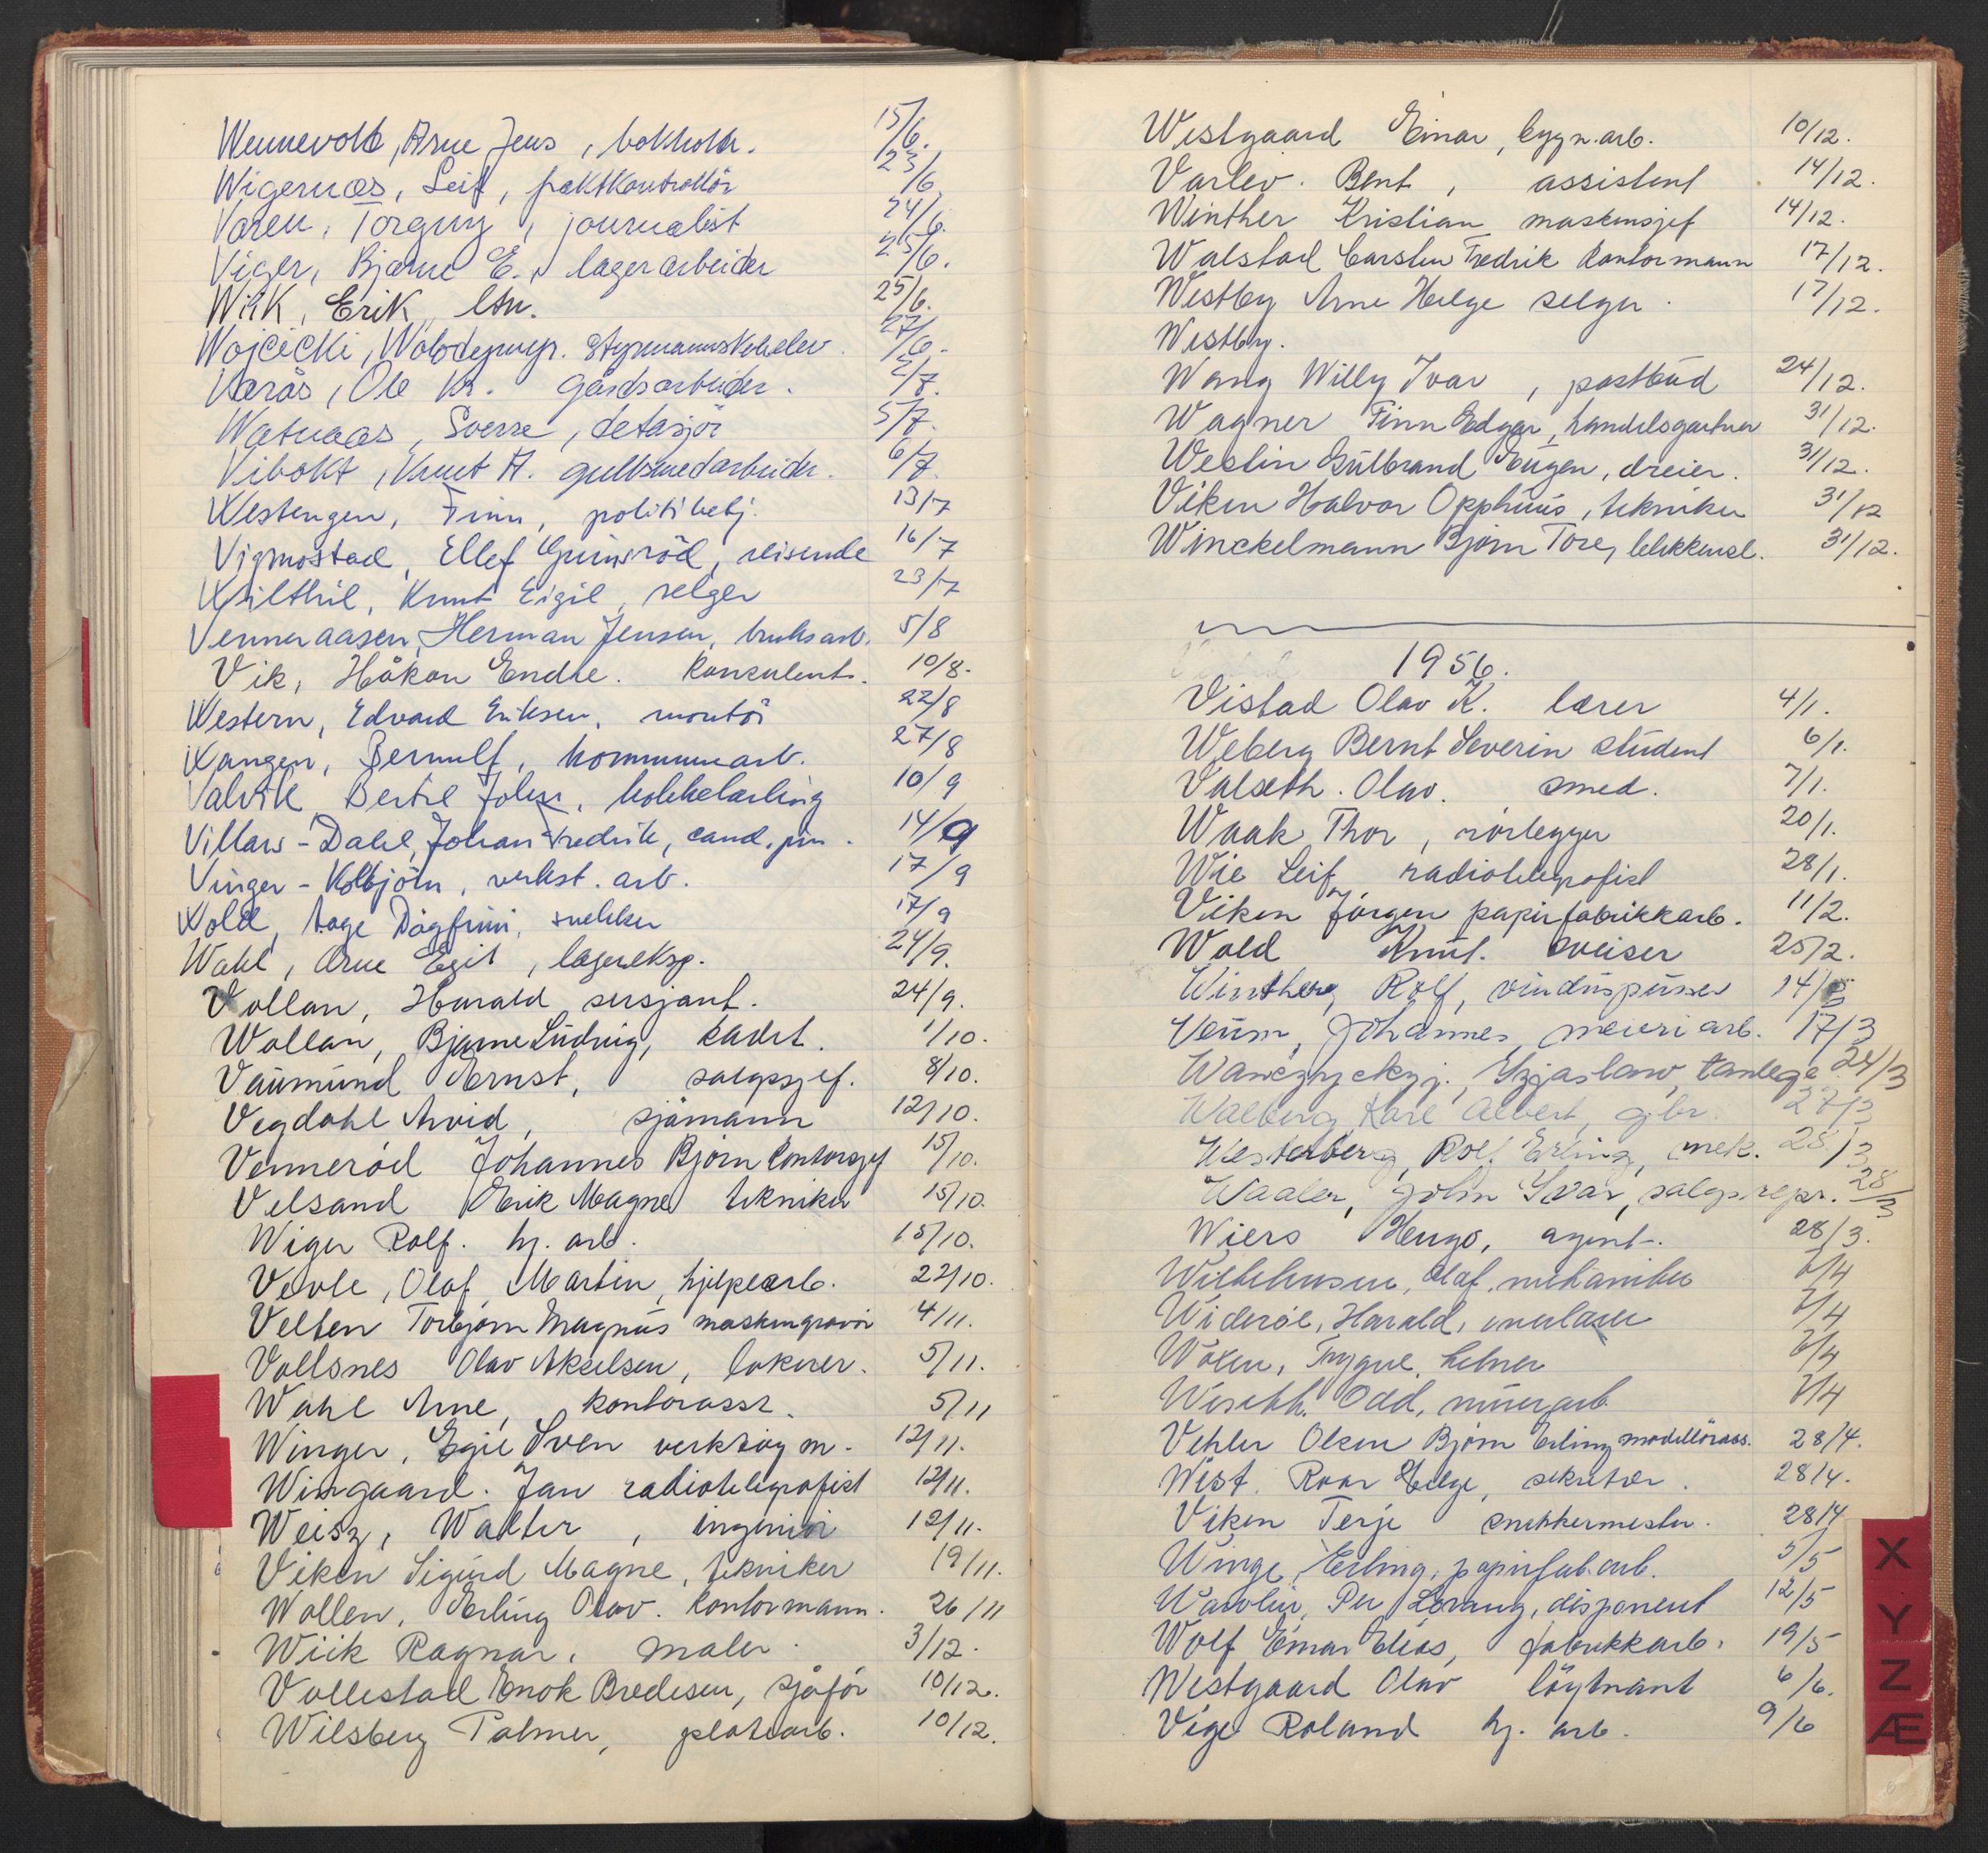 Wennevold, Arne Jens, bokholder. 15/6.
Wigernæs, Leif, fraktkontrollör 23/6
Voren, Torgny, journalist 24/6.
Viger, Bjarne E., lagerarbeider 25/6.
Wiik, Erik, ltn. 25/6.
Wojcicki, Wolodymyr. Styrmannskoleelev. 27/6.
Værås, Ole Kr. gårdsarbeider. 2/7.
Watnaas, Sverre, detasjör 5/7.
Vibokt, Knut A. gullsmedarbeider. 6/7.
Westengen, Finn, politibetj. 13/7
Vigmostad, Ellef Grimsröd, reisende 16/7
Knut Eigil, selger 23/7
Venneraasen, Herman Jensen, bruksarb. 5/8
Vik, Håkon Endre. Konsulent. 10/8.
Western, Edvard Eriksen, montör 22/8
Vangen, Bernulf, kommunearb. 27/8
Valvik, Bertil Johan, kokkelærling 10/9
Villars-Dahl, Johan Fredrik, cand. jur. 14/9
Vinger - Kolbjörn, verkst. arb. 17/9
Vold, Aage Dagfinn, snekker 17/9
Wahl, Arne Egil, lagereksp. 24/9.
Vollan, Harald sersjant. 24/9.
Wollan, Bjarne Ludvig, kadet. 1/10.
Vaumund Ernst, salgssjef. 8/10.
Vegdahl Arvid, sjömann 12/10.
Venneröd Johannes Bjørn Kontorsjef 15/10.
Velsand Erik Magne tekniker 15/10.
Wiger Rolf. hj. arb. 15/10.
Vevle, Olaf Martin, hjelpearb. 22/10.
Velten Torbjørn Magnus maskingravör 4/11.
Vollsnes Olav Akselsen, lakerer. 5/11.
Wahl Arne, kontorass. 5/11
Winger, Egil Sven verktöym. 12/11.
Wingaard. Jan radiotelegrafist 12/11.
Weisz, Walter, ingeniör 12/11.
Viken Sigurd Magne, tekniker 19/11.
Wollen, Erling Olav. Kontormann. 26/11
Wiik Ragnar, maler. 3/12.
Vollestad Enok Bredesen, sjåför 10/12.
Wilsberg Palmer, platearb. 10/12.
Westgaard Einar, bygn.arb. 10/12.
Varlev. Bent, assistent 14/12.
Winther Kristian maskinsjef 14/12.
Walstad Carsten Fredrik Kontormann 17/12.
Westby Arne Helge selger. 17/12.
Westby.
Wang Willy Ivar, postbud 24/12.
Wagner Finn Edgar, handelsgartner 31/12.
Westin Gulbrand Eugen, dreier. 31/12.
Viken Halvor Opphuus, tekniker 31/12
Winckelmann Bjørn Tore, blikkensl. 31/12.
1956.
Vistad Olav K. lærer 4/1.
Weberg Bernt Severin student 6/1.
Valseth. Olav. smed. 7/1.
Waak Thor, rörlegger 20/1.
Wie Leif radiotelegrafist 28/1.
Viken Jörgen papirfabrikkarb. 11/2.
Wold Knut. sveiser 25/2.
Winther, Rolf, vinduspusser 14/3
Veum, Johannes, meieriarb. 17/3
Wanczyckyj., Yzjaslaw, tannlege 24/3
Walberg, Karl Albert, gbr. 27/3
Westerberg, Rolf Erling, mek. 28/3
Waaler, John Ivar, salgsrepr. 28/3
Wiers Hugo, agent. 28/3.
Wilhelmsen, Olaf, mekaniker 7/4
Wideröe, Harald, murlærer 7/4
Wölen, Trygve, 7/4
Odd, murerarb. 7/4
Vehler Olsen Bjørn Erling modellörass. 28/4.
Wist. Roar Helge, sekretær. 28/4.
Viken Terje snekkermester. 28/4
Winge, Erling, papirfab.arb. 5/5
Wavolin, Per Lorang, disponent 12/5
Wolf Einar Elias, fabrikkarb. 19/5
Westgaard Olav löytnant 6/6.
Vige Roland hj. arb. 9/6
X
Y
Z
Æ